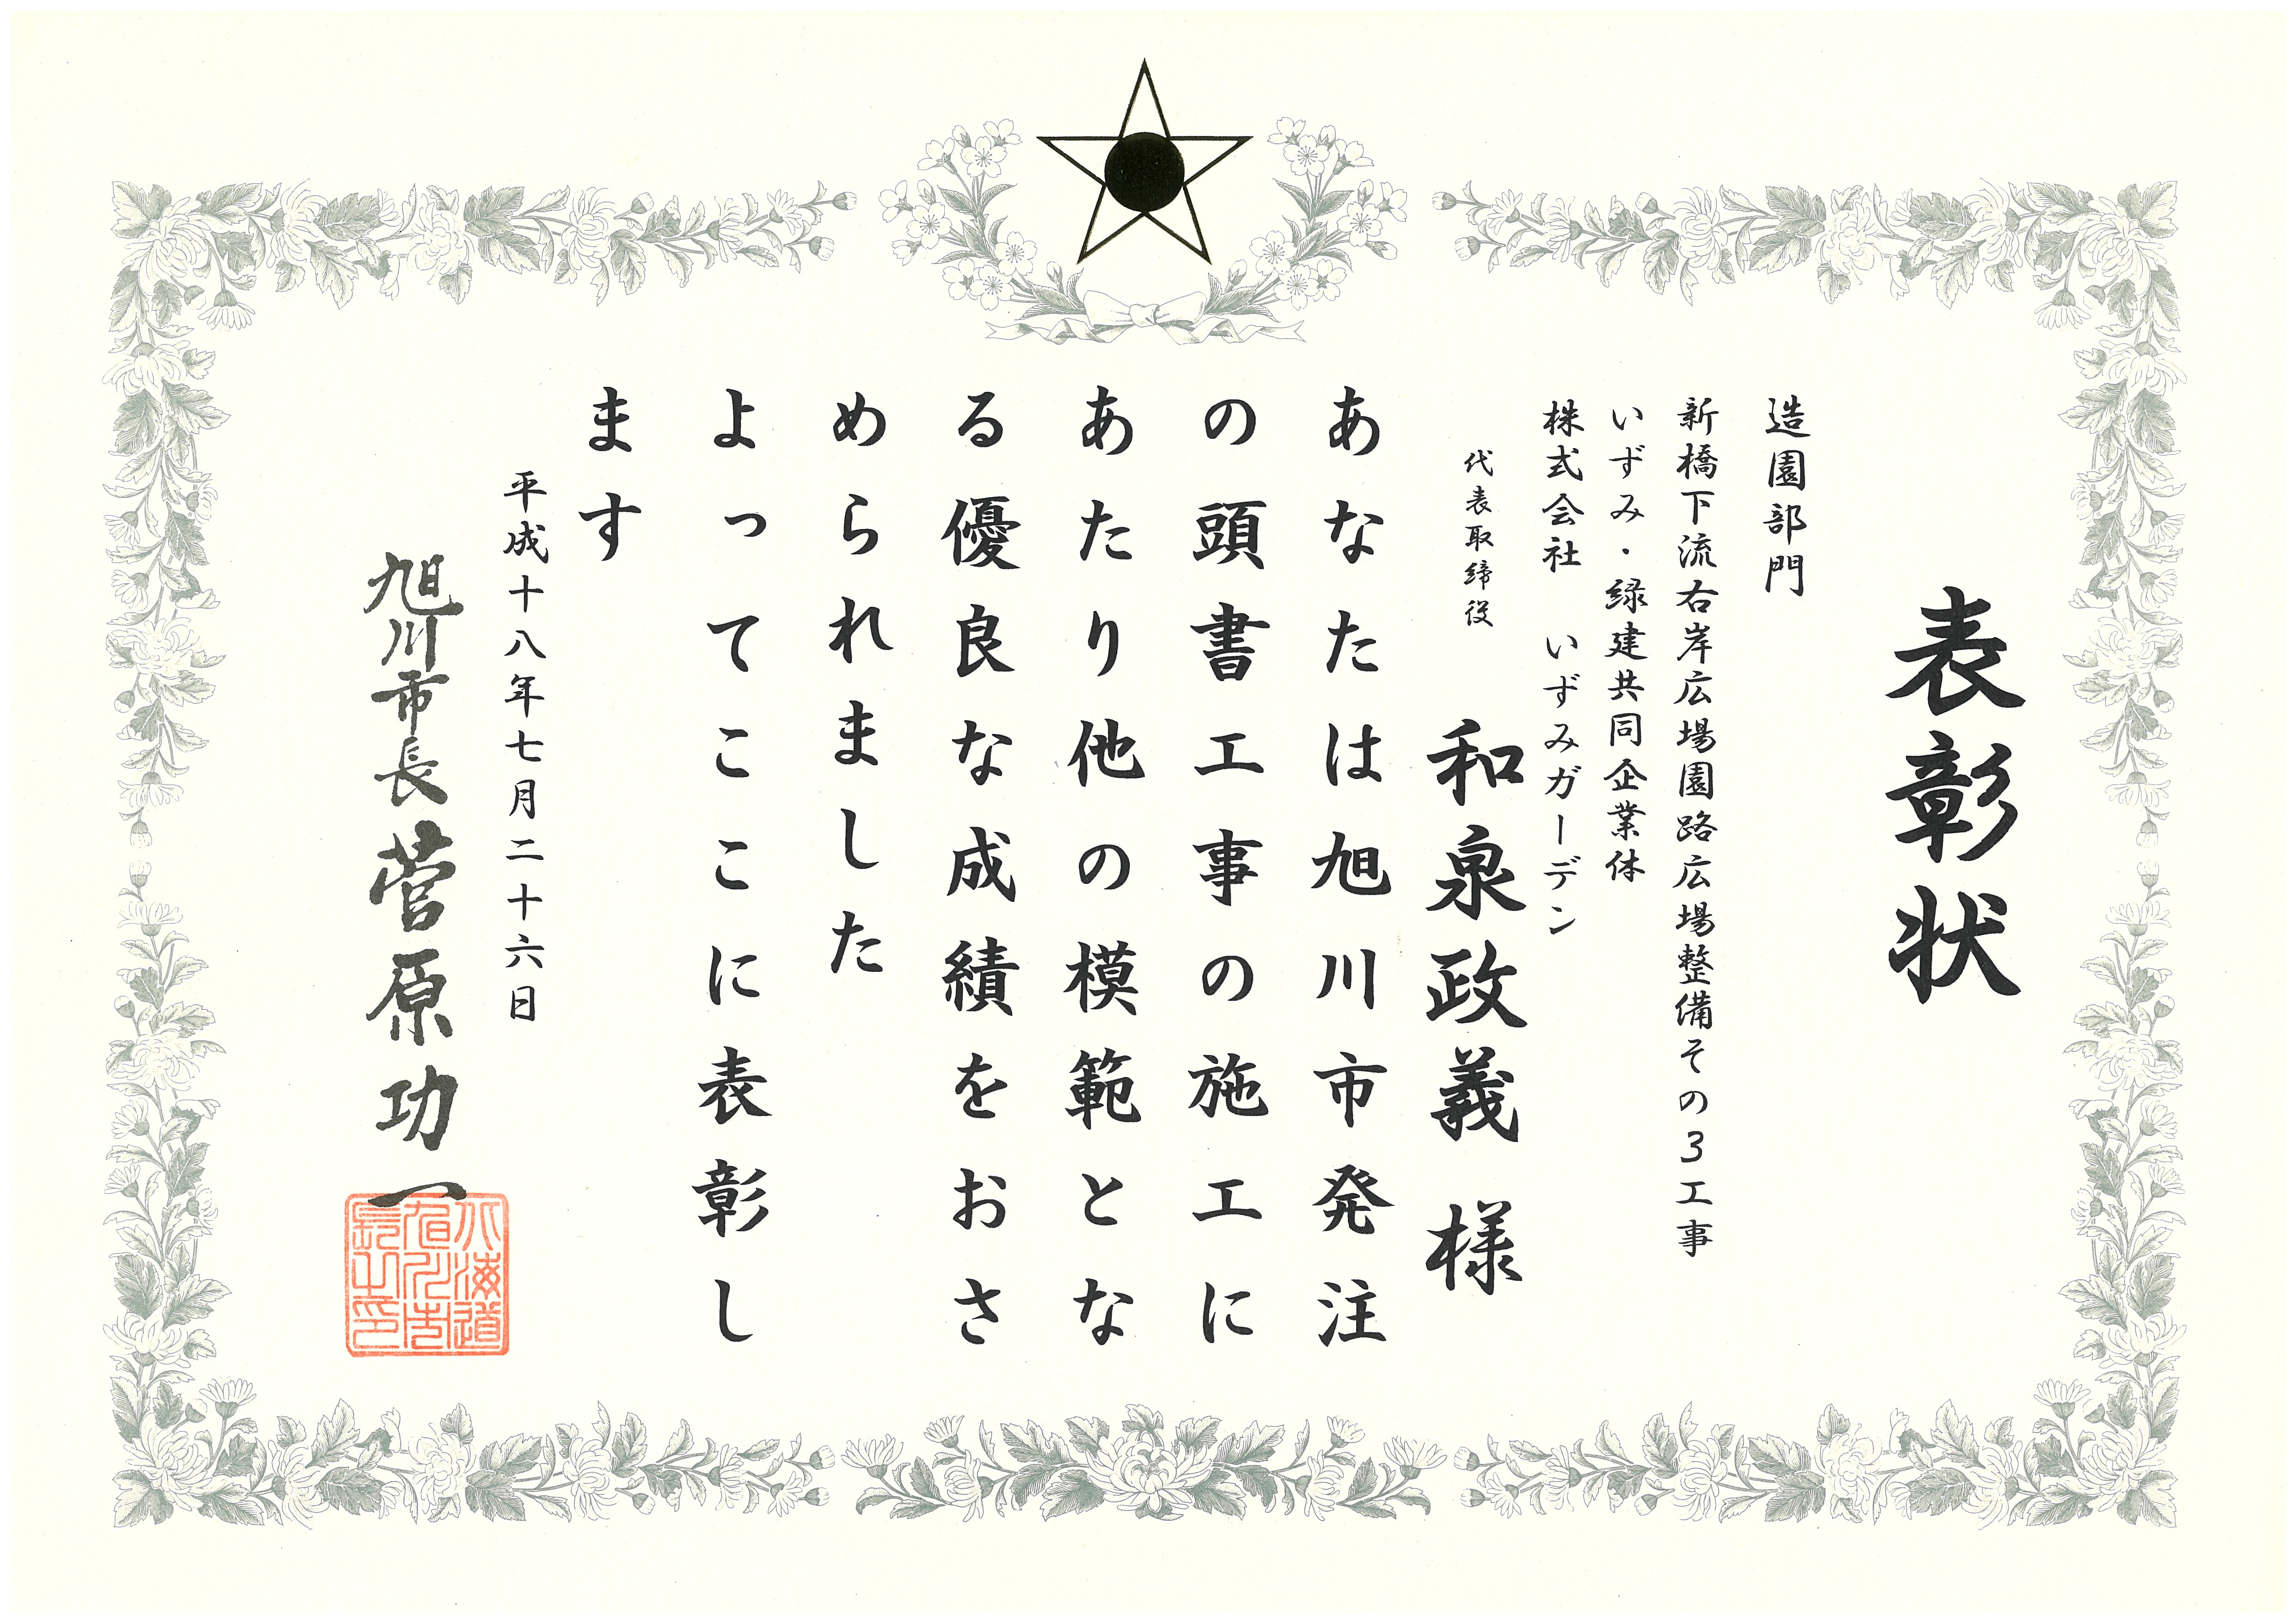 表彰状
造園部門
新橋下流右岸広場園路広場整備その3工事
いずみ・緑建共同企業体
株式会社 いずみガーデン
代表取締役
和泉政義 様
あなたは旭川市発注
の頭書工事の施工に
あたり他の模範とな
る優良な成績をおさ
められました
よってここに表彰し
ます
平成十八年七月二十六日
旭川市長 菅原功一
北海道
旭川市
長之印